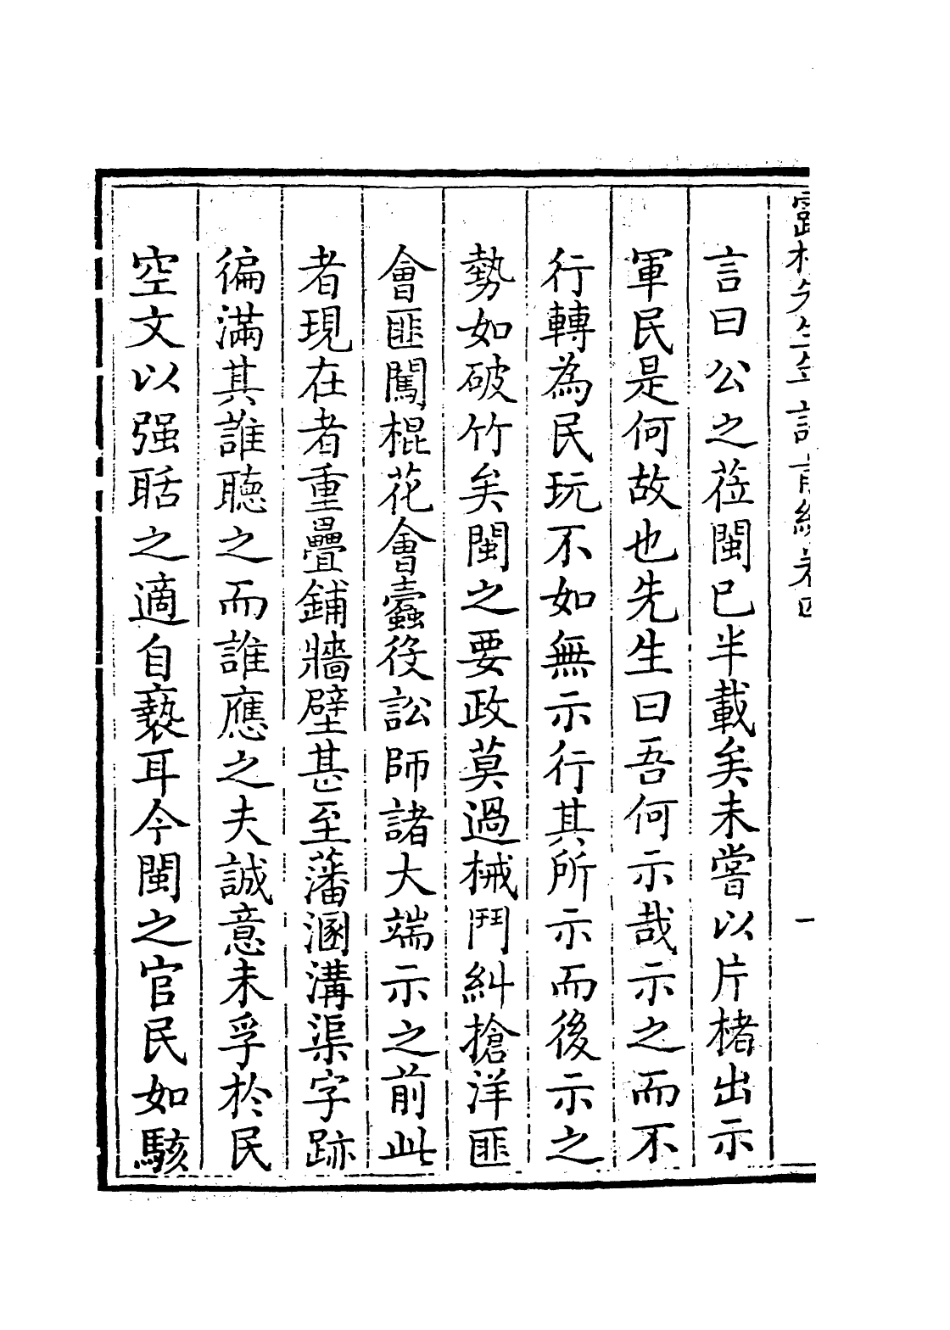 言曰公之莅閩已半載矣未嘗以片楮出示
軍民是何故也先生曰吾何示哉示之而不
行轉為民玩不如無示行其所示而後示之
勢如破竹矣閩之要政莫過械鬥糾搶洋匪
會匪闖棍花會蠹役訟師諸大端示之前此
者現在者重疊鋪牆壁甚至藩溷溝渠字跡
徧滿其誰聽之而誰應之夫誠意未孚於民
空文以强聒之適自褻耳今閩之官民如駭